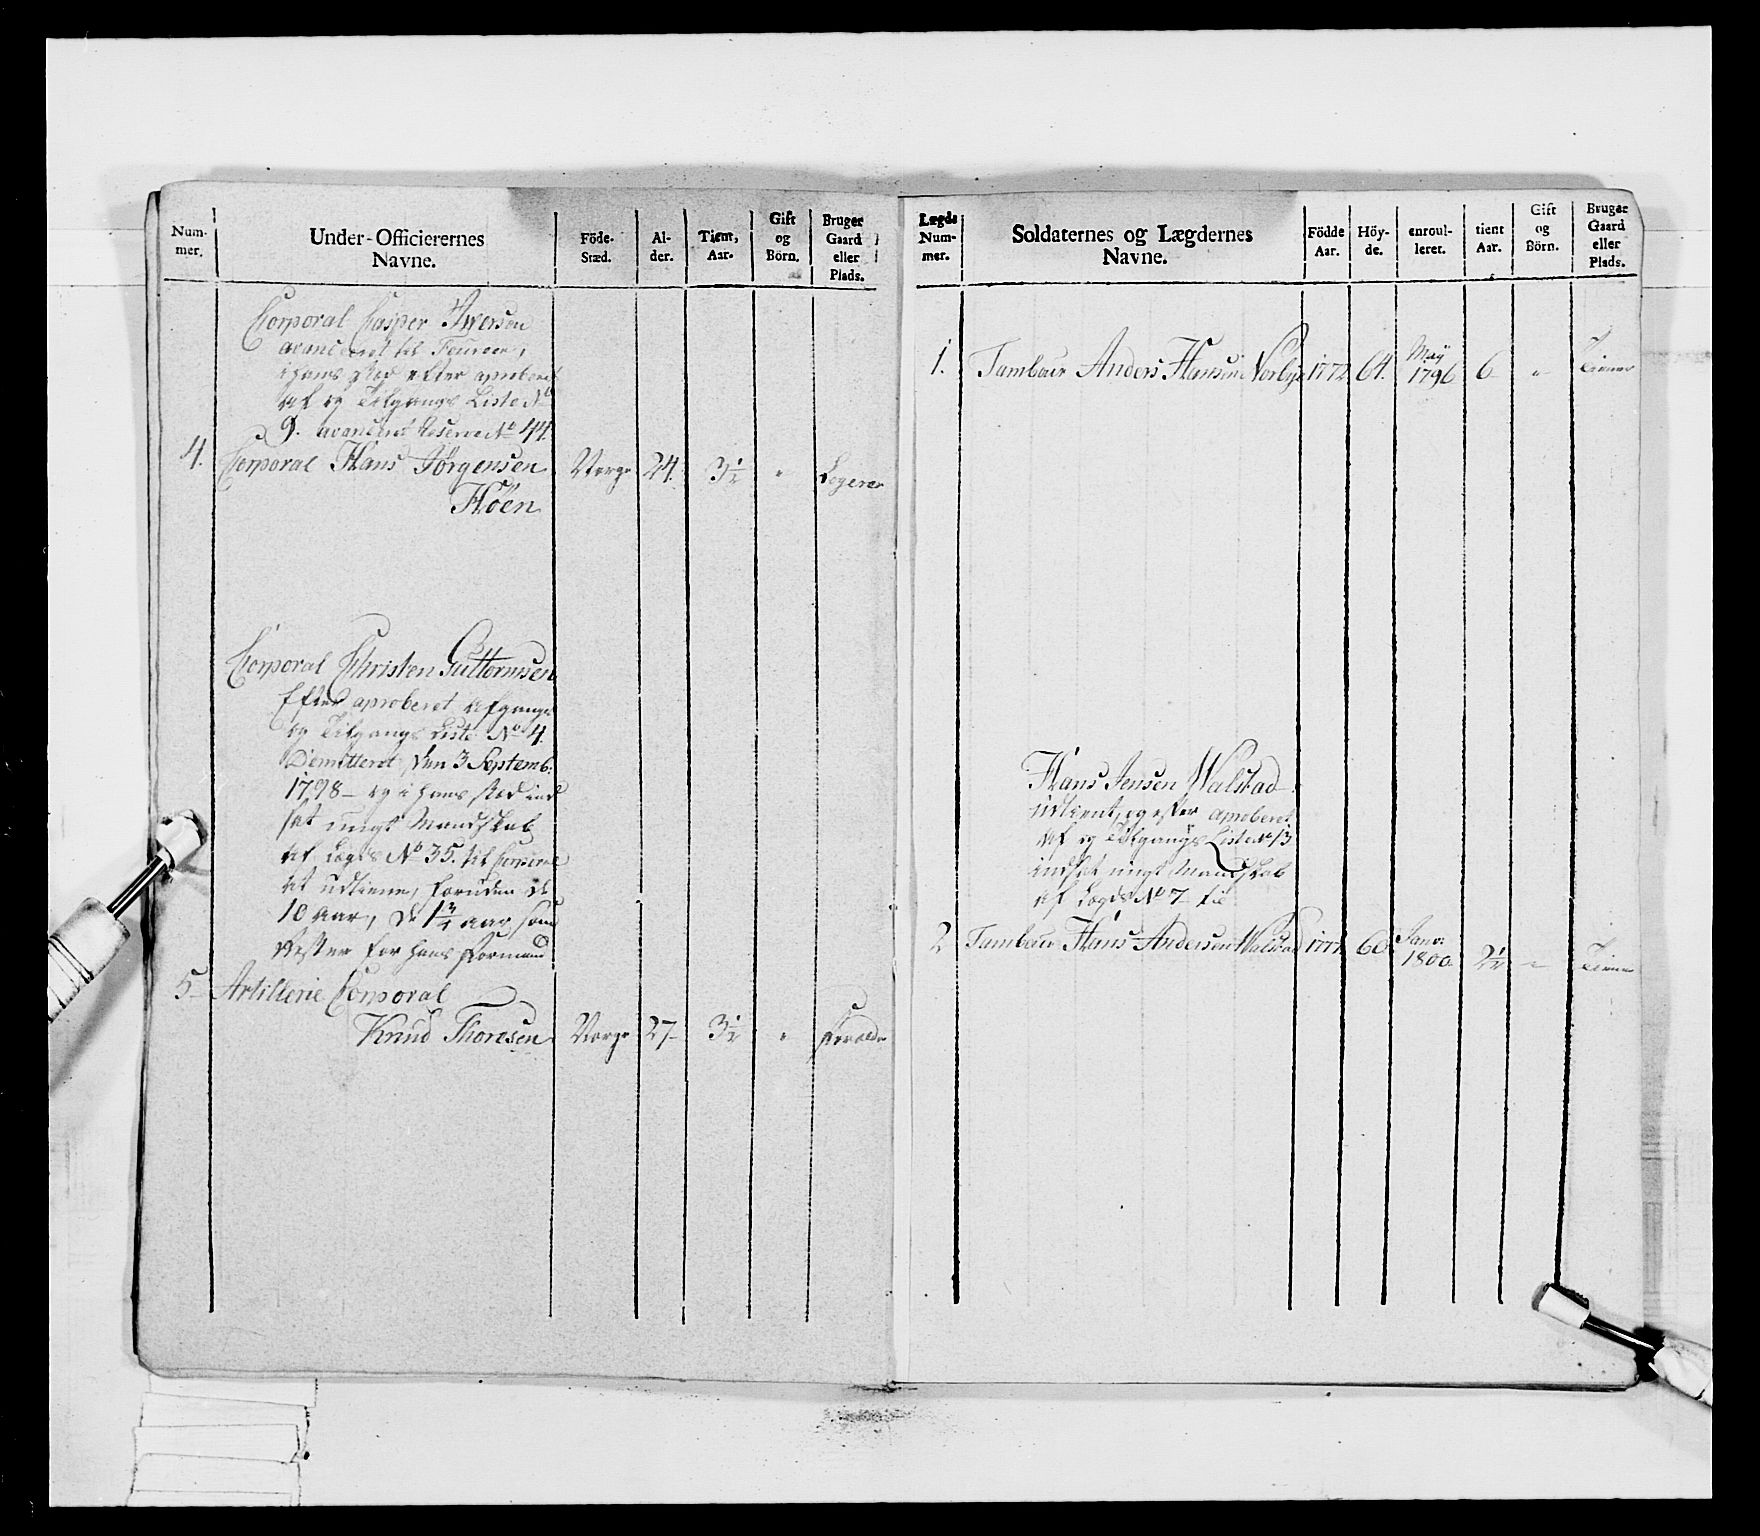 Num-
mer.
Under-Officierernes
Navne.
Föde-
Stæd.
Al-
der.
Tient,
Aar.
Gift
og
Börn.
Bruger
Gaard
eller
Plads.
Corporal Casper Iversen
avanceret til Foureer,
i hans sted efter aproberet
af og Tilgangs Liste No
9. avanceret Reserve No 44.
4. Corporal Hans Jörgensen Norge 24. 3½ " Logerer
Höen
Corporal Christen Guttormsen
Efter aproberet afgangs
og Tilgangs Liste No 4.
Demitteret den 3 Septemb:
1798 - og i hans sted ind
sat ungt Mandskab
af Legds No 35. til Corporal
at udtiene, foruden de
10 Aar, de 1¾ Aar som
rester for hans Formand
5 Artillerie Corporal
Knud Thoresen Norge 27 3½ " Forældre
Lægds
Num-
mer.
Soldaternes og Lægdernes
Navne.
Födde
Aar.
Höy-
de.
enroul-
leret.
tient
Aar.
Gift
og
Börn.
Bruger
Gaard
eller
Plads.
1. Tambour Anders Hansen Norbye 1772 64. May 1796 6 " Tiener
Hans Jensen Walstad
udtient, og efter aproberet
af og Tilgangs Liste No 13
indsat ungt Mandskab
af Legds No 7 til
2 Tambour Hans Andersen Walstad 177 60 Janv: 1800 2½ " Tiener